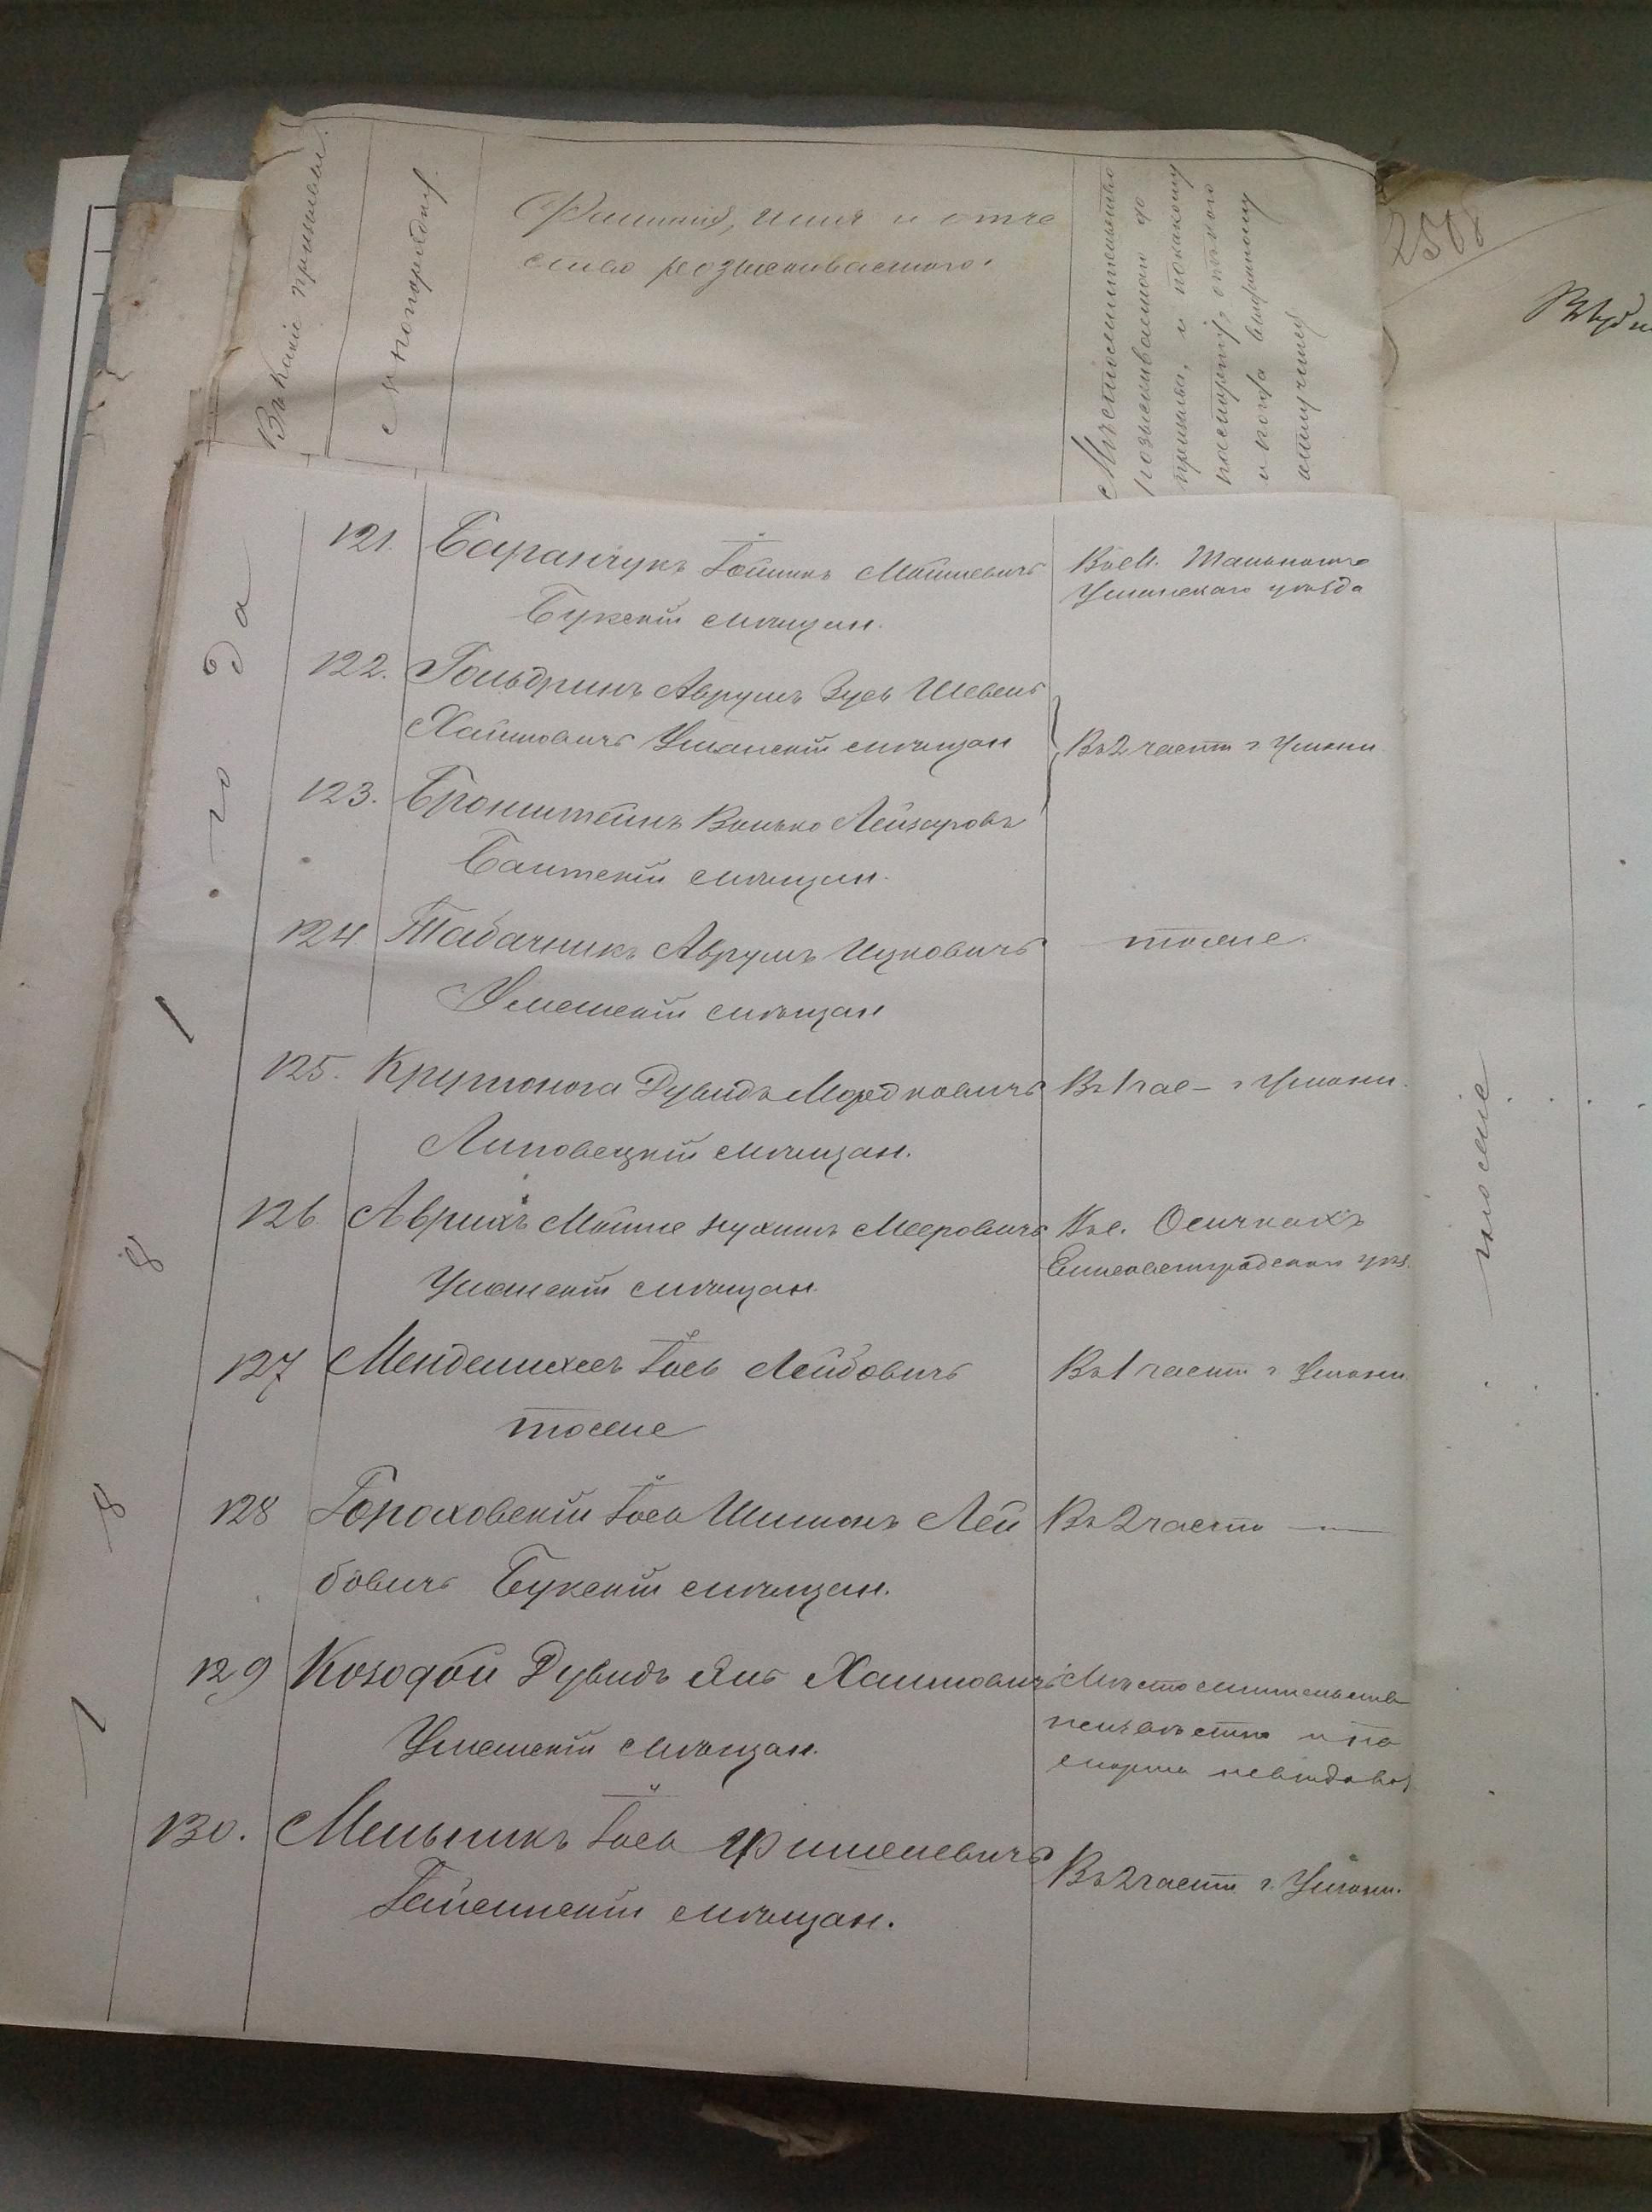 Въ какіе призывы.
№ по порядку.
Фамилія, имя и отче
ство розыскиваемого.
Мѣстожительство
розыскиваемого до
призыва, и по какому
паспорту, от кого
и когда выданному
отлучился
250
1881 года
121. Баранчукъ Іойникъ Мошкевичъ
Букскій мѣщан.
Въ м. Тальномъ
Уманскаго уѣзда
122. Гольдринъ Аврумъ Зусь Шевель
Хаимовичъ Уманскій мѣщан
Въ 2 части г Умани
123. Бронштейнъ Волько Лейзаровъ
Балтскій мѣщан.
124 Табачникъ Аврумъ Ицковичъ
Уманскій мѣщан
тоже.
125. Крутонога Дувидъ Мордковичъ
Липовецкій мѣщан.
Въ 1 час– г Умани.
126 Аврихъ Мошие Нухимъ Мееровичъ
Уманскій мѣщан.
Въ с. Осичкахъ
Елисаветградскаго уѣз.
127 Іось Лейбовичъ
тоже
Въ 1 части г Умани
128 Гороховскій Іось Шимонъ Лей
бовичъ Букскій мѣщан.
Въ 2 части —
129 Козодой Дувидъ Янъ Хаимовичъ
Уманскій мѣщан.
Мѣстожительство
неизвѣстно и па
спорта невыдавал
130. Мельникъ Іось Фишелевичъ
мѣщан.
Въ 2 части г. Умани.
тоже